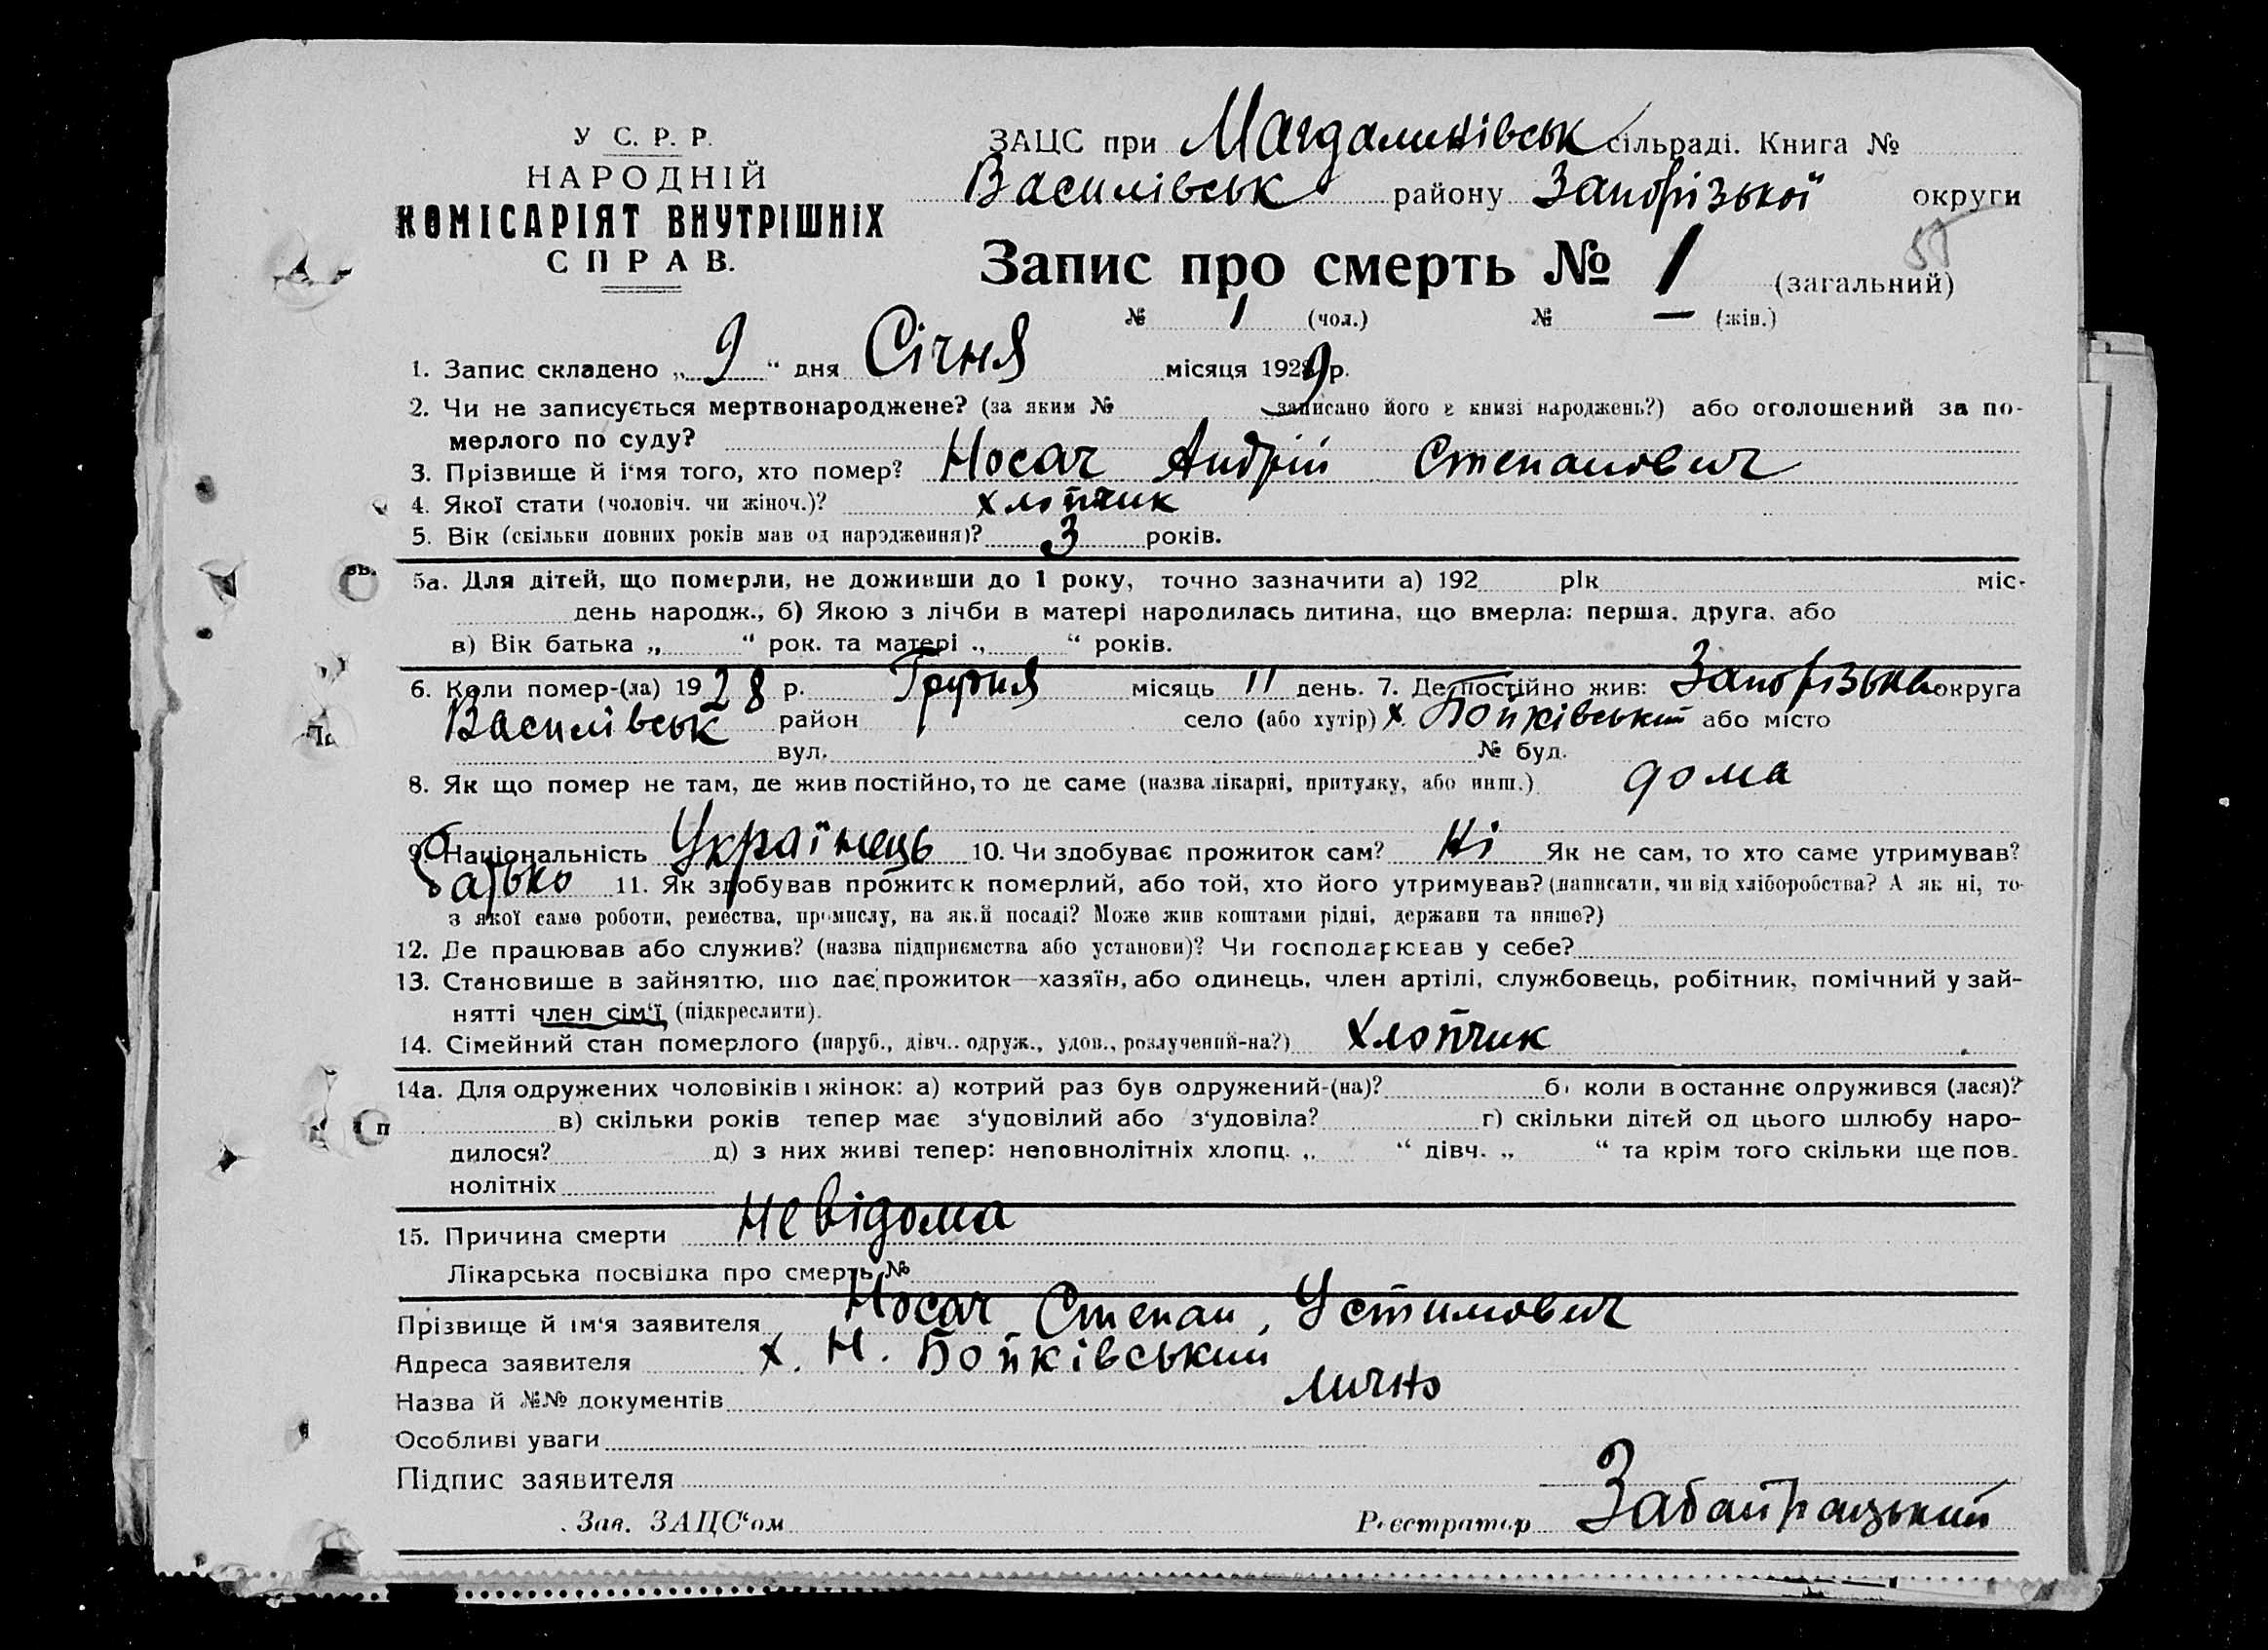 У С. Р. Р.
НАРОДНІЙ
КОМІСАРІЯТ ВНУТРІШНІХ
СПРАВ.
ЗАЦС при Магдалинівськ сільраді. Книга №
Василівськ району Запорізької округи
55
Запис про смерть № 1 (загальний)
№ 1 (чол.) № — (жін.)
1. Запис складено „ 9 “ дня Січня місяця 1929 р.
2. Чи не записується мертвонароджене? (за яким № записано його в книзі народжень?) або оголошений за по-
мерлого по суду?
3. Прізвище й і'мя того, хто помер? Носач Андрій Степанович
4. Якої стати (чоловіч. чи жіноч.)? хлопчик
5. Вік (скільки повних років мав од народження)? 3 років.
5а. Для дітей, що померли, не доживши до 1 року, точно зазначити а) 192 рік міс.
день народж., б) Якою з лічби в матері народилась дитина, що вмерла: перша, друга, або
в) Вік батька „ “ рок. та матері „ “ років.
6. Коли помер-(ла) 1928 р. Грудня місяць 11 день. 7. Де постійно жив: Запорізька округа
Василівськ район село (або хутір) х. Бойківський або місто
вул. № буд.
8. Як що помер не там, де жив постійно, то де саме (назва лікарні, притулку, або инш.) дома
9. Національність Українець 10. Чи здобуває прожиток сам? Ні Як не сам, то хто саме утримував?
батько 11. Як здобував прожиток померлий, або той, хто його утримував? (написати, чи від хліборобства? А як ні, то-
з якої саме роботи, ремества, промислу, на як.й посаді? Може жив коштами рідні, держави та инше?)
12. Де працював або служив? (назва підприємства або установи)? Чи господарював у себе?
13. Становище в зайняттю, що дає прожиток—хазяїн, або одинець, член артілі, службовець, робітник, помічний у зай-
нятті член сім'ї (підкреслити).
14. Сімейний стан померлого (паруб., дівч.. одруж., удов., розлучений-на?) хлопчик
14а. Для одружених чоловіків і жінок: а) котрий раз був одружений-(на)? б) коли востаннє одружився (лася)?
в) скільки років тепер має з'уповілий або з'удовіла? г) скільки дітей од цього шлюбу наро-
дилося? д) з них живі тепер: неповнолітніх хлопц. „ “ дівч. „ “ та крім того скільки ще пов.
нолітніх
15. Причина смерти Невідома
Лікарська посвідка про смерть №
Прізвище й ім'я заявителя Носач Степан, Устимович
Адреса заявителя х. Н. Бойківський
Назва й №№ документів лично
Особливі уваги
Підпис заявителя
Зав. ЗАЦС'ом Реєстратор